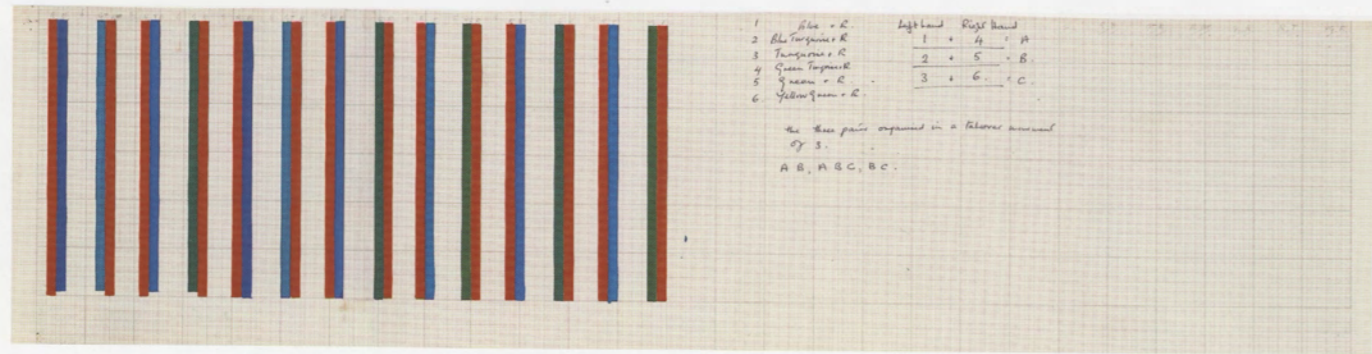 1 Blue + R.
2 Blue Turquoise + R
3 Turquoise + R
4 Green Turquoise R
5 Green + R.
6. Yellow Green + R.
Left hand Right hand
1 + 4 = A
2 + 5 = B.
3 + 6. = C.
the three pairs organised in a takeover movement
of 3.
A B, A B C, B C.